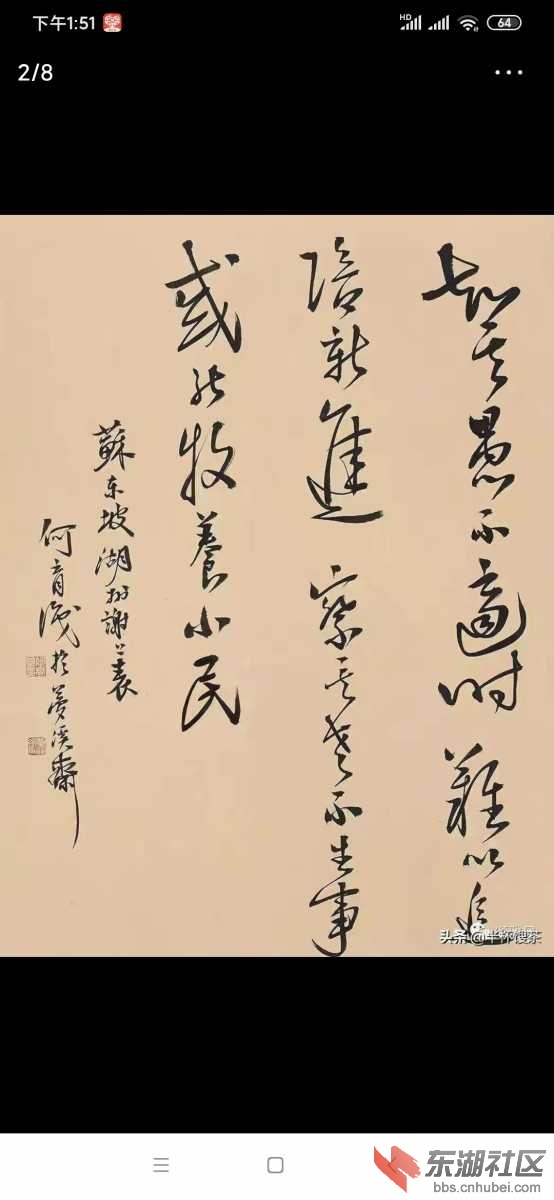 下午1:51
HD
64
2/8
知其愚不適時 難以追
陪新進 察其老不生事
或能牧養小民
蘇東坡湖州謝上表
何育成於夢溪齋
头条@半杯馊茶
东湖社区
bbs.cnhubei.com